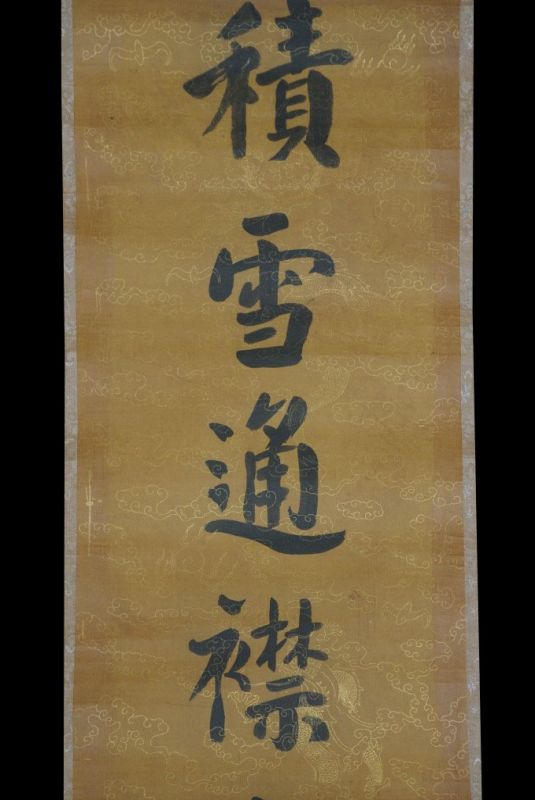 積雪通襟